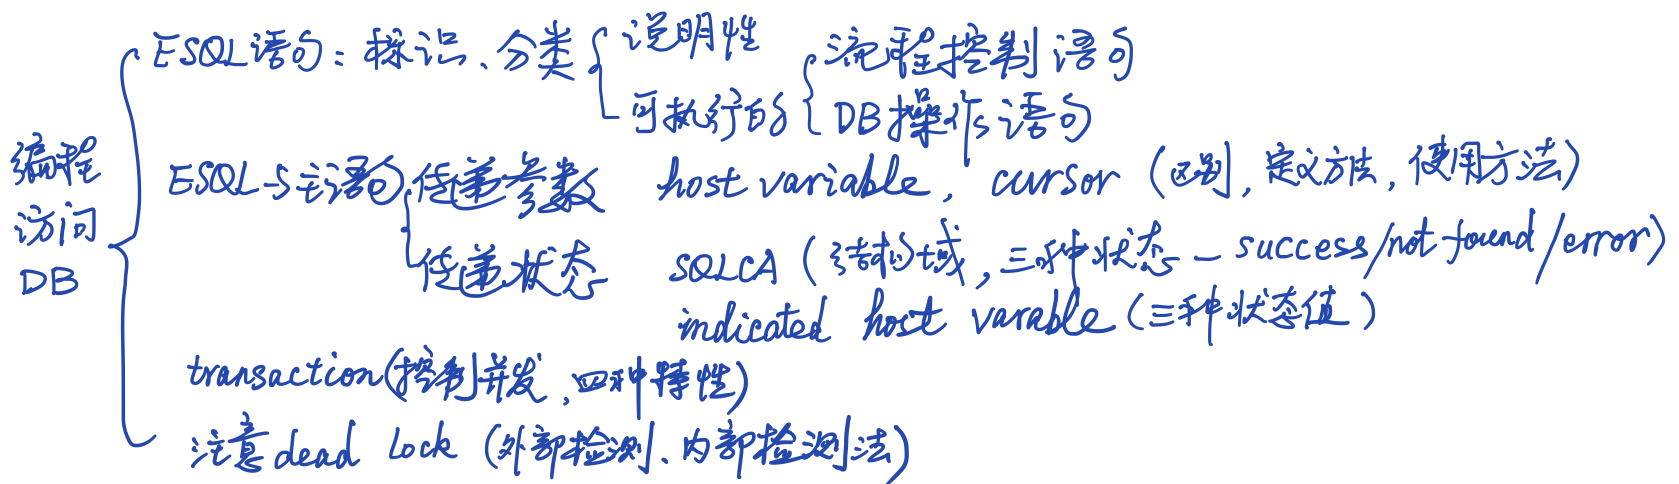 编程
访问
DB
ESQL语句：标识、分类
说明性
可执行的
流程控制语句
DB操作语句
ESQL与主语句
传递参数 host variable, cursor (区别, 定义方法, 使用方法)
传递状态 SQLCA (结构域, 三种状态 - success/not found/error)
indicated host varable (三种状态值)
transaction(控制并发, 四种特性)
注意dead Lock (外部检测、内部检测法)